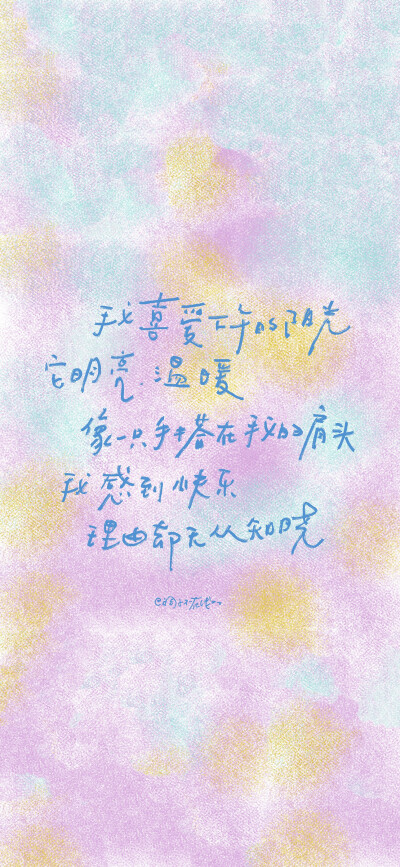 我喜爱下午的阳光
它明亮.温暖
像一只手搭在我的肩头
我感到快乐
理由却无从知晓